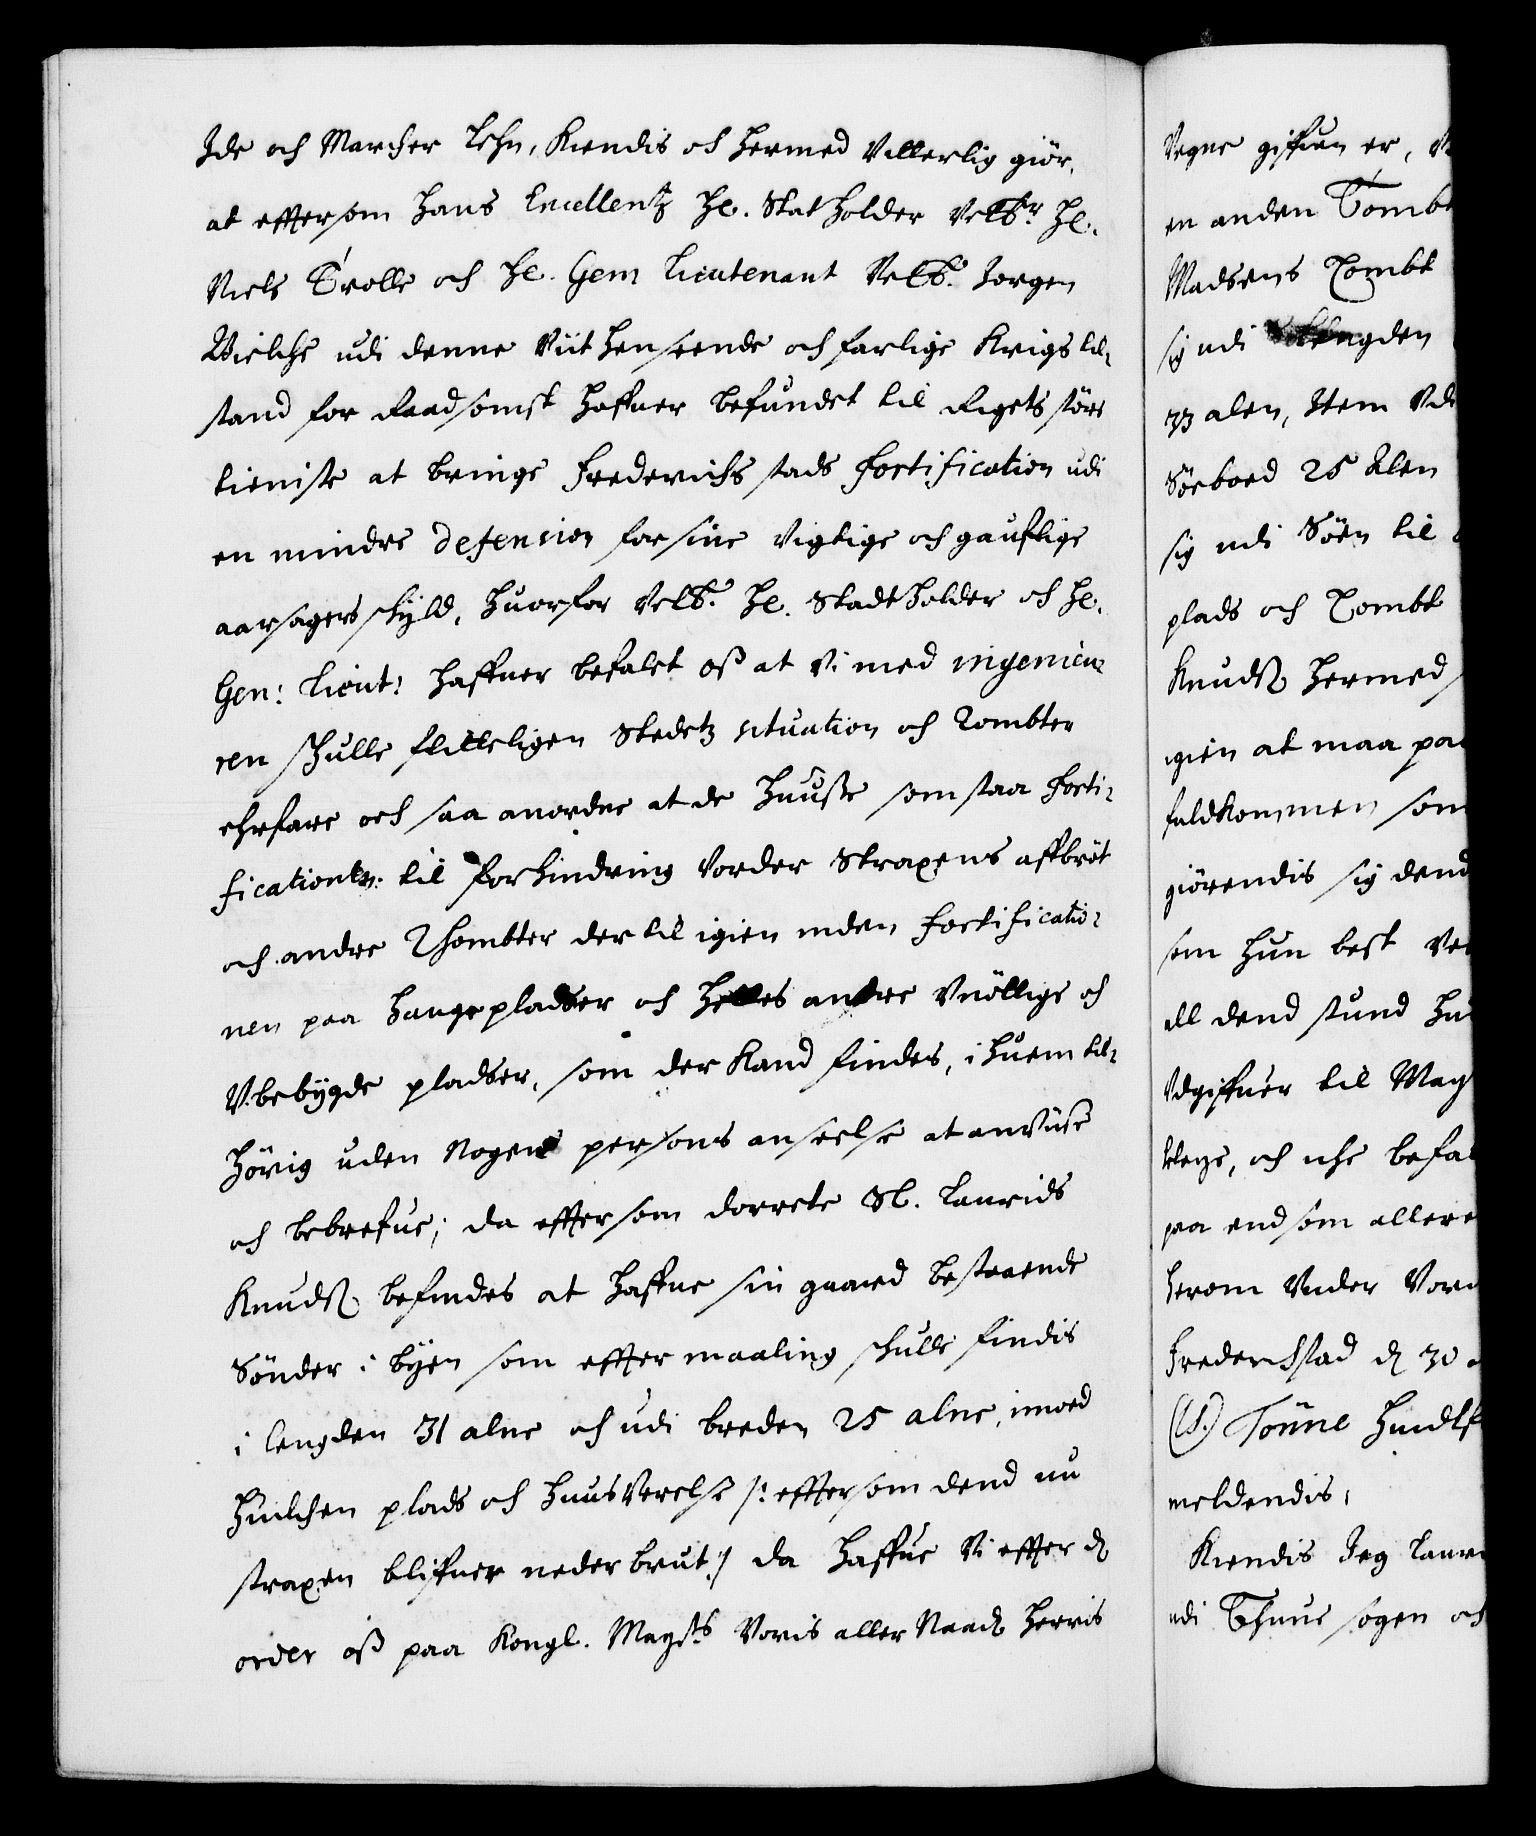 Ide och Marcher Lehn, Kiendis och hermed Vitterlig giør,
at efftersom hans Excellentz He. Statholder Velb:r He.
Niels Trolle och He. Gem Lieutenant Velb. Jorgen
Bielche udi denne Viit henseende och farlige Krigs til¬
stand for Raadsomst haffuer befundet til Rigets störe
tieniste at bringe Frederichsstads Fortification udi
en mindre defension for sine Vigtige och gaufflige
aarsagers skyld, huorfor Velb. He. Stadtholder och He.
Gen: Lieut: haffuer befalet oß at Vi med ingenieu¬
ren skulle flitteligen Stedetz situation och Tombter
ehrfare och saa anordne at de huuße som staa Forti¬
ficationen til forhindring Vorder Straxens affbröt
och andre Thombter der til igien inden Fortificatio¬
nen paa haugepladser och helles andre Vnöttige och
Vbebygde pladser, som der kand findes, i huem til¬
hörig uden Nogens persons anseelse at anviise
och bebrefue; da effter som dorrete Sl. Laurids
Knudß befindes at haffue sin gaard bestaaende
Sönder i byen som effter maaling skulle findis
i lengden 31 alne och udi breden 25 alne, imoed
huilchen plads och huusverelse /: effter som dend nu
straxen bliffuer neder brut :/ da haffue Vi effter d
order oß paa Kongl. Mayts Voris aller Naad Herris
Vegne giffuen er,
en anden Tombt
Madsens Tombt
sig udi Lengden
33 alen, Item Vdi
Söeboed 25 Alen
sig udi Söen til
plads och Tombt
Knudß hermed
igien at maa paa
fuldkommen som
giörendis sig dend
som hun best
all dend stund
Vdgiffuer til May
klage, och iche befal
paa end som allere
herom Vnder Vor
Frederichstad d 30
(LS.) Tönne Huidtf
meldendis,
Kiendis Jeg Laur
udi Thune sogen och